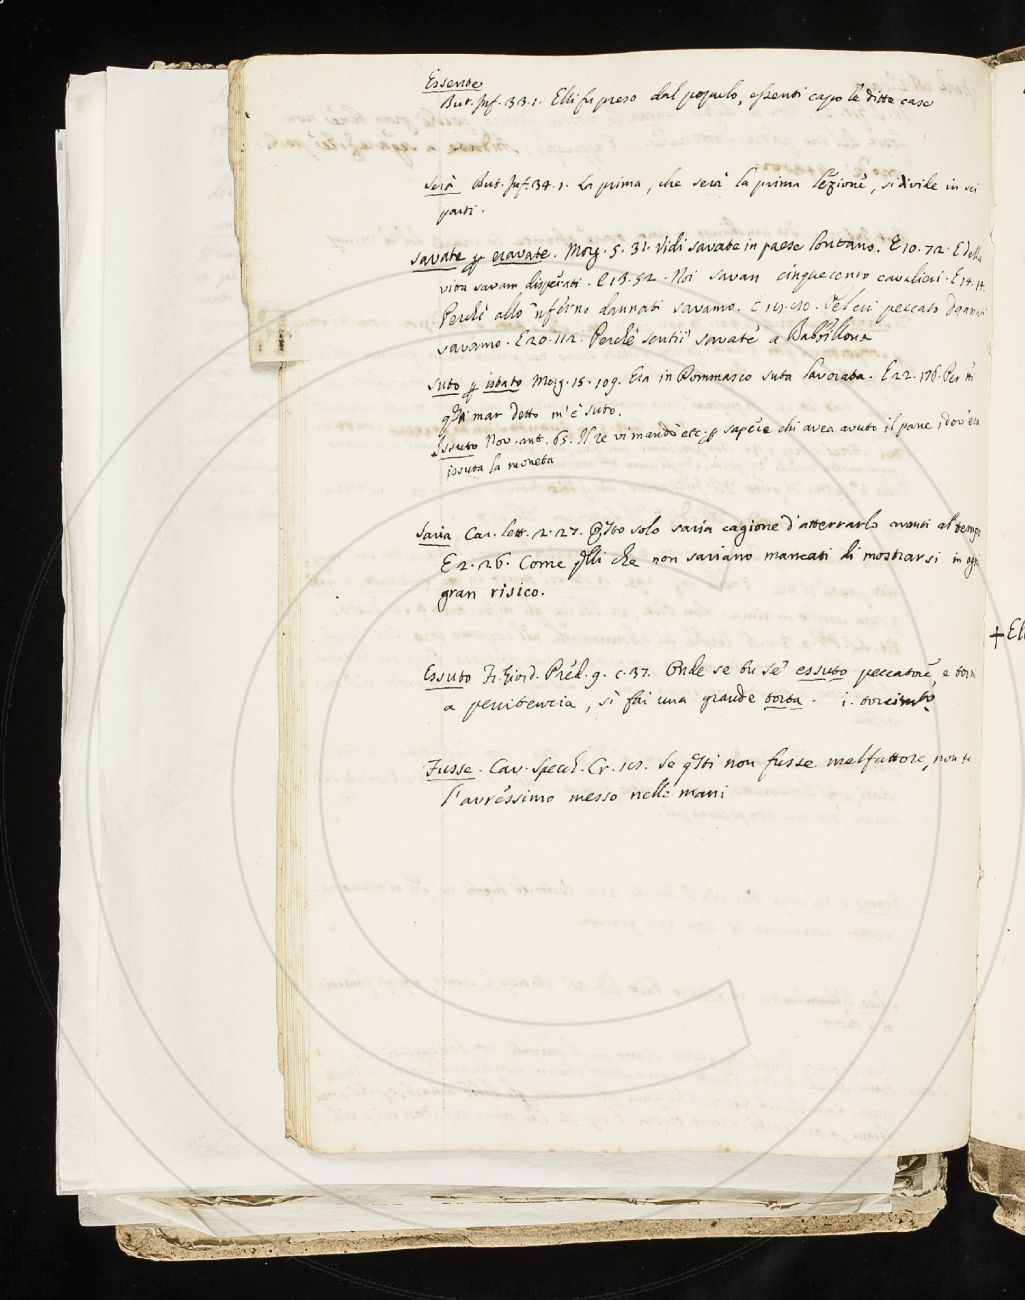 Essente
But. Inf. 33. 1. Elli fu preso dal populo, essenti capo le ditte case
Serà But. Inf. 34. 1. La prima, che serà la prima lezione, si divide in sei
parti.
Savate p eravate. Morg. 5. 31. Vidi savate in paese lontano. E 10. 72. E della
vita savam disperati. E 13. 52. Noi savan cinquecento cavalieri. E 14. 14.
Perchè allo 'nferno dannati savamo. E Pel cui peccato dannati
savamo. E 20. 112. Perchè sentii savate a Babbillona
Suto p istato Morg. 15. 109. Era in Dommasco suta lavorata. E 22. 176. Per
mar detto m'è suto.
Issuto Nov. ant. 65. Il re vi mandò etc. p sapere chi avea avuto il pane, dov'era
issuta la moneta
Saria Cav. lett. 2. 27. Qsto solo saria cagione d'atterrarlo avanti al tempo
E 2. 26. Come qlli che non sariano mancati di mostrarsi in ogni
gran risico.
Essuto Fr. Giord. Pred. 9. c. 37. Onde se tu se' essuto peccatore, e torni
a penitenzia, sì fai una grande torta. i. torcim̃to
+ El
Fusse. Cav. Specch. Cr. Se qsti non fusse malfattore, non te
l'avressimo messo nelle mani